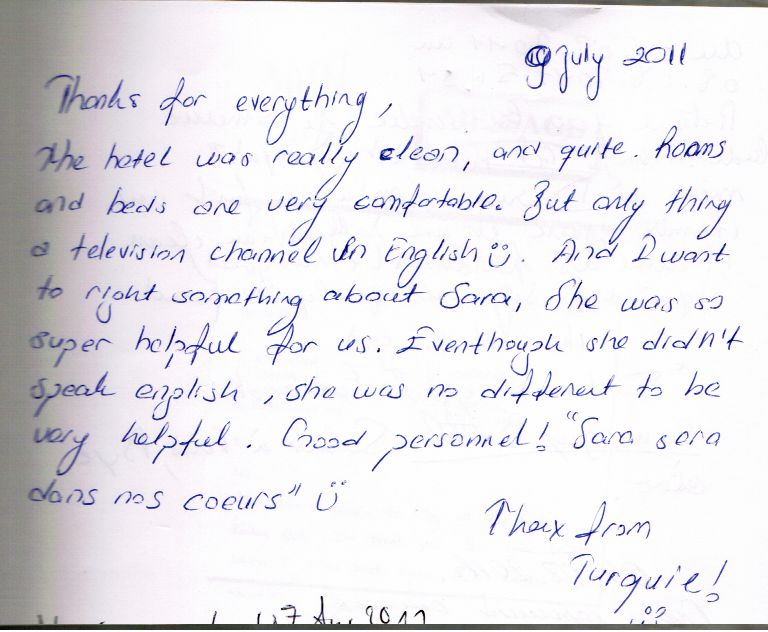 9 July 2011
Thanks for everything,
The hotel was really clean, and quite. Rooms
and beds are very comfortable. But only thing
a television channel in English ☺. And I want
to right something about Sara, She was so
super helpful for us. Eventhough she didn't
speak english, she was no different to be
very helpful. Good personnel! "Sara sera
dans nos coeurs" ☺
Thanx from
Turquie!
☺